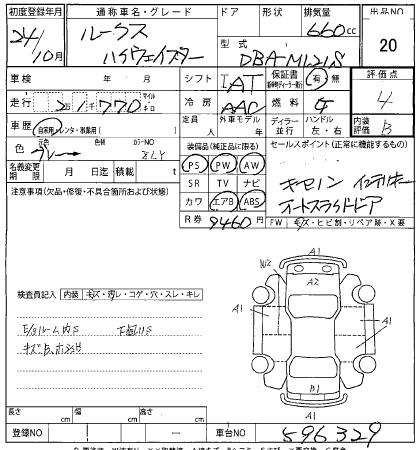 初度登録年月 通称車名・グレード ドア 形状 排気量 出品NO
24/10月 ルークス ハイウェイスター 660cc 20
型式 DBA-ML21S
車検 年 月 シフト IAT 保証書 有 無 評価点
走行 21770 マイル キロ 冷房 AAC 燃料 4
車歴 自家用・レンタ・事業用( ) 定員 人 外車モデル 年 ディーラー 並行 ハンドル 左・右 内装評価 B
色 元色 色替 カラーNO 装備品(純正品に限る) セールスポイント(正常に機能するもの)
PS PW AW
名義変更期限 月 日迄 積載 t SR TV ナビ キセノン インテリキー
注意事項(欠品・修復・不具合箇所および状態) カワ エアB ABS オートスライドドア
R券 9460円 FW キズ・ヒビ割・リペア跡・X要
A1
W2 A2
検査員記入 内装 キズ・汚レ・コゲ・穴・スレ・キレ A1 A1
下廻りS
B1
A1
長さ cm 幅 cm 高さ cm
登録NO 車台NO 596329